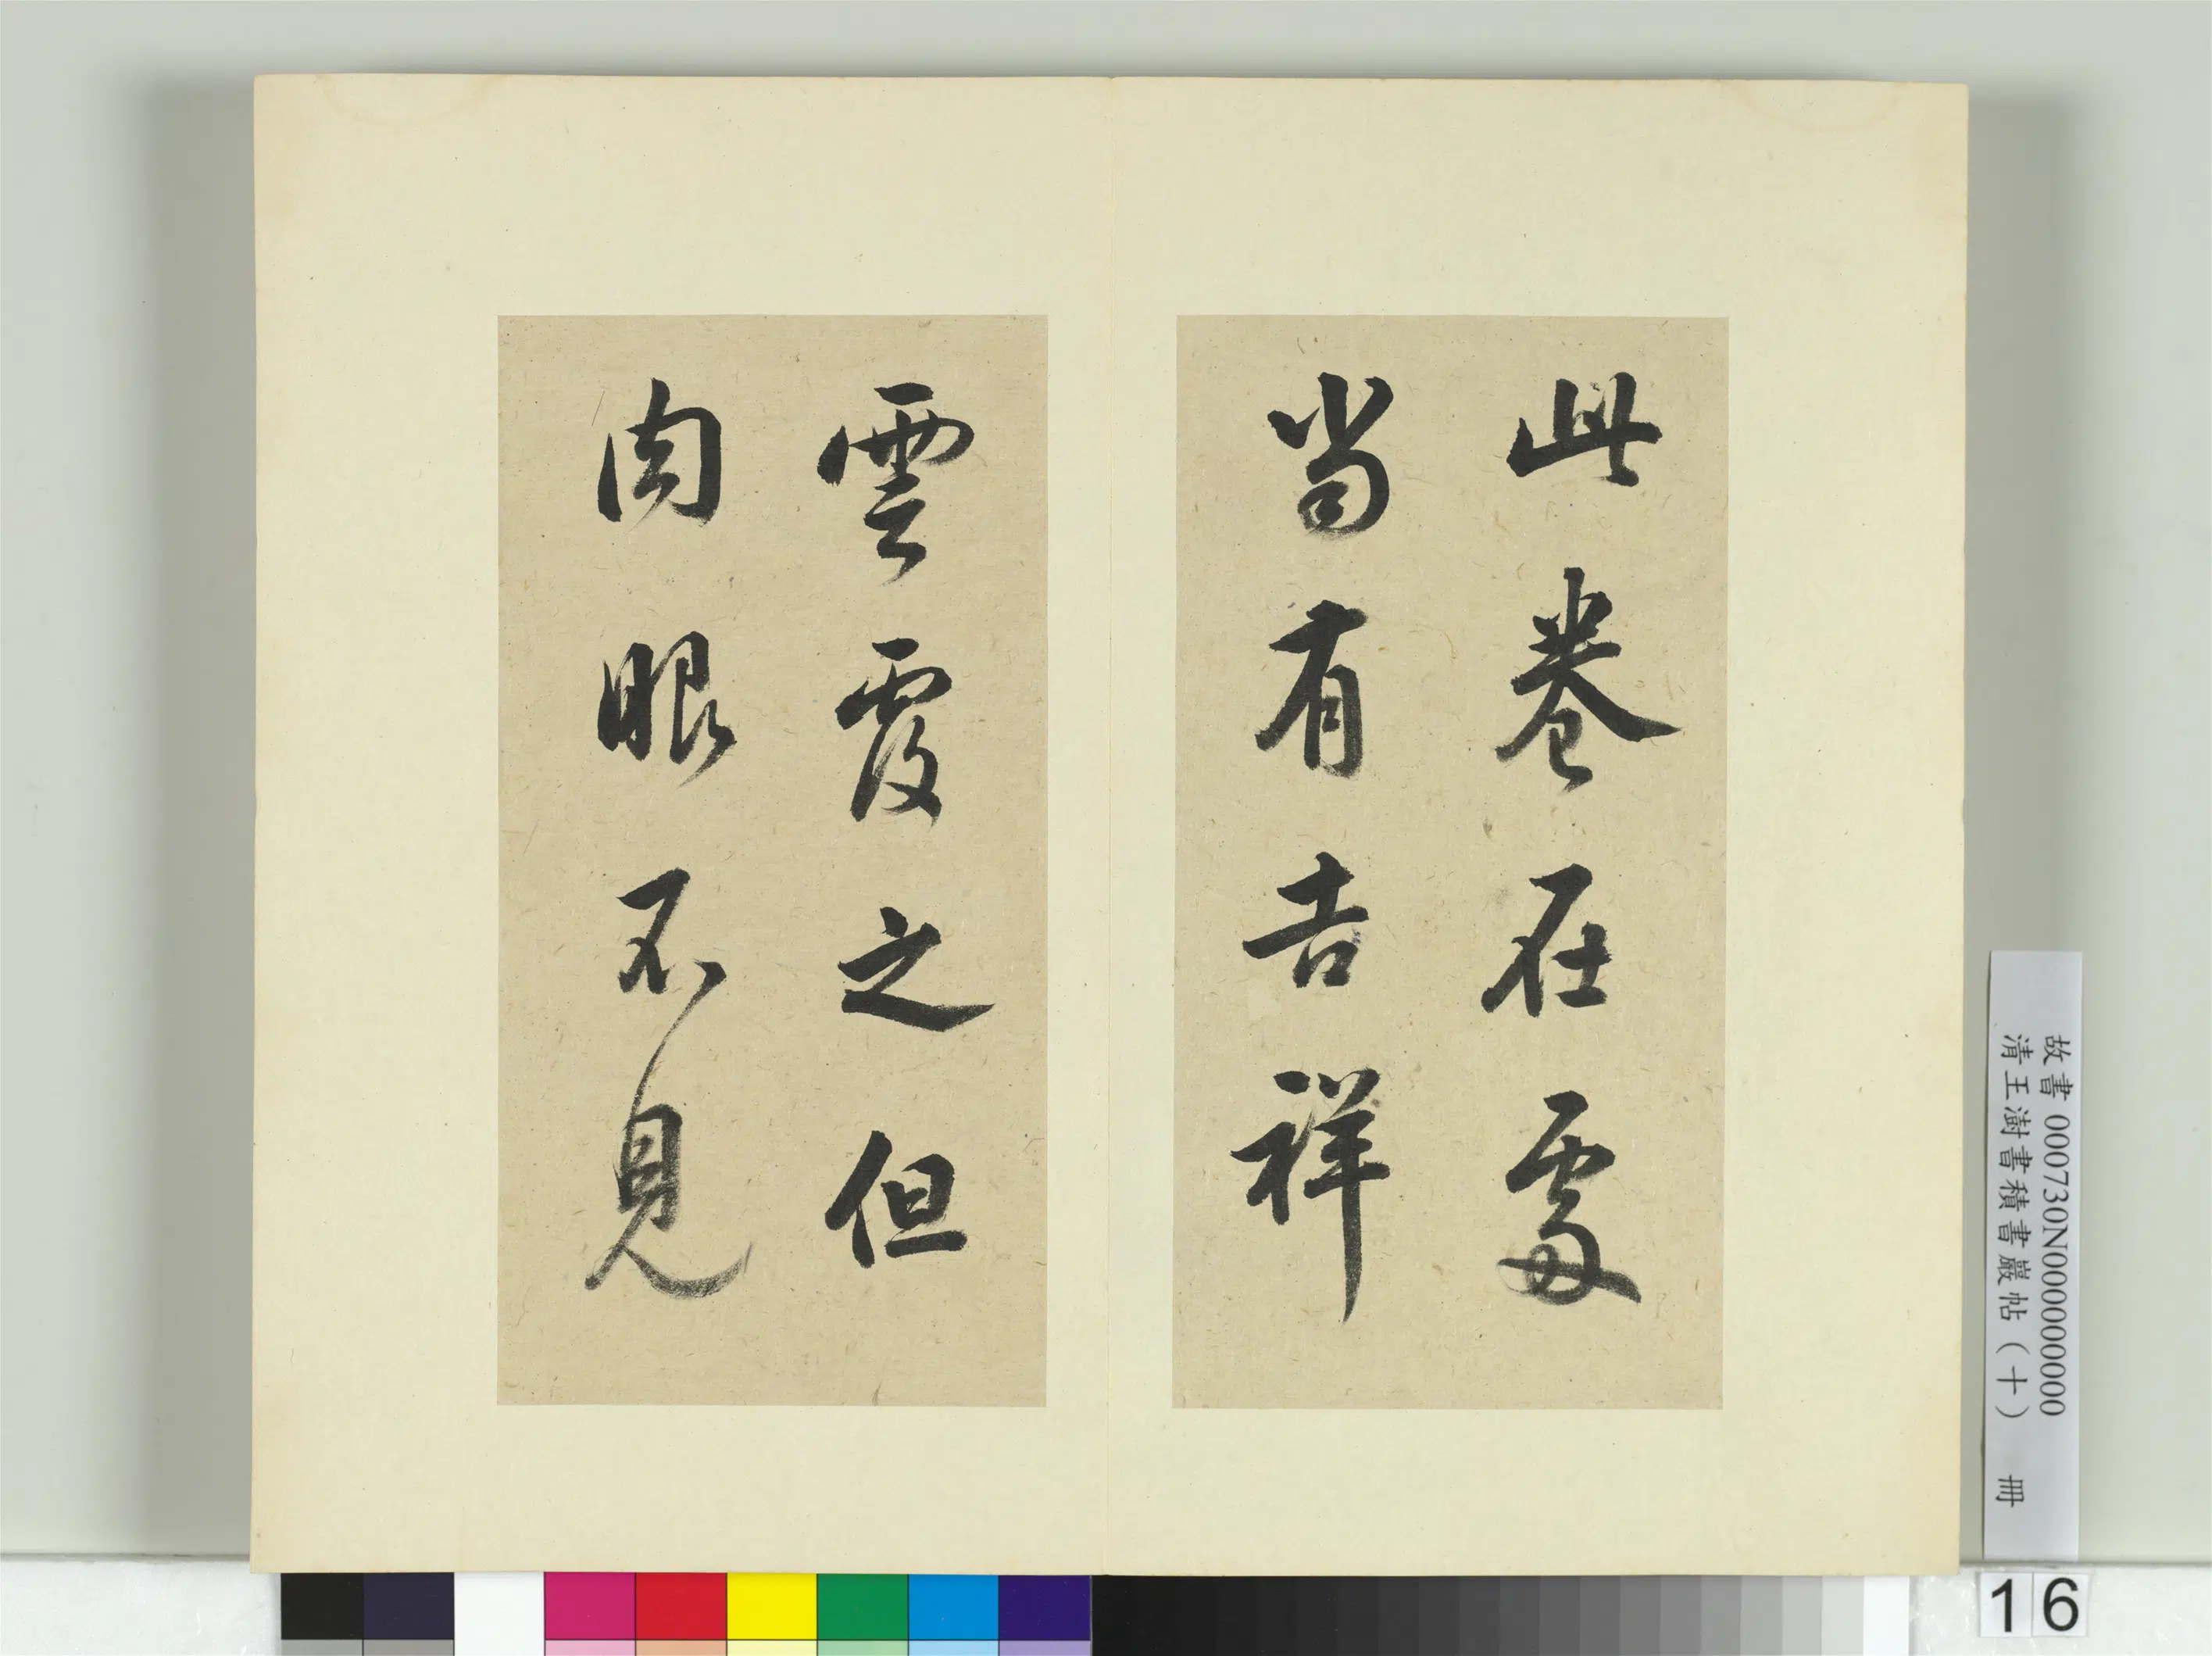 此卷在處
當有吉祥
雲覆之但
肉眼不見
故書 000730N000000000
清王澍書積書巖帖（十） 冊
16